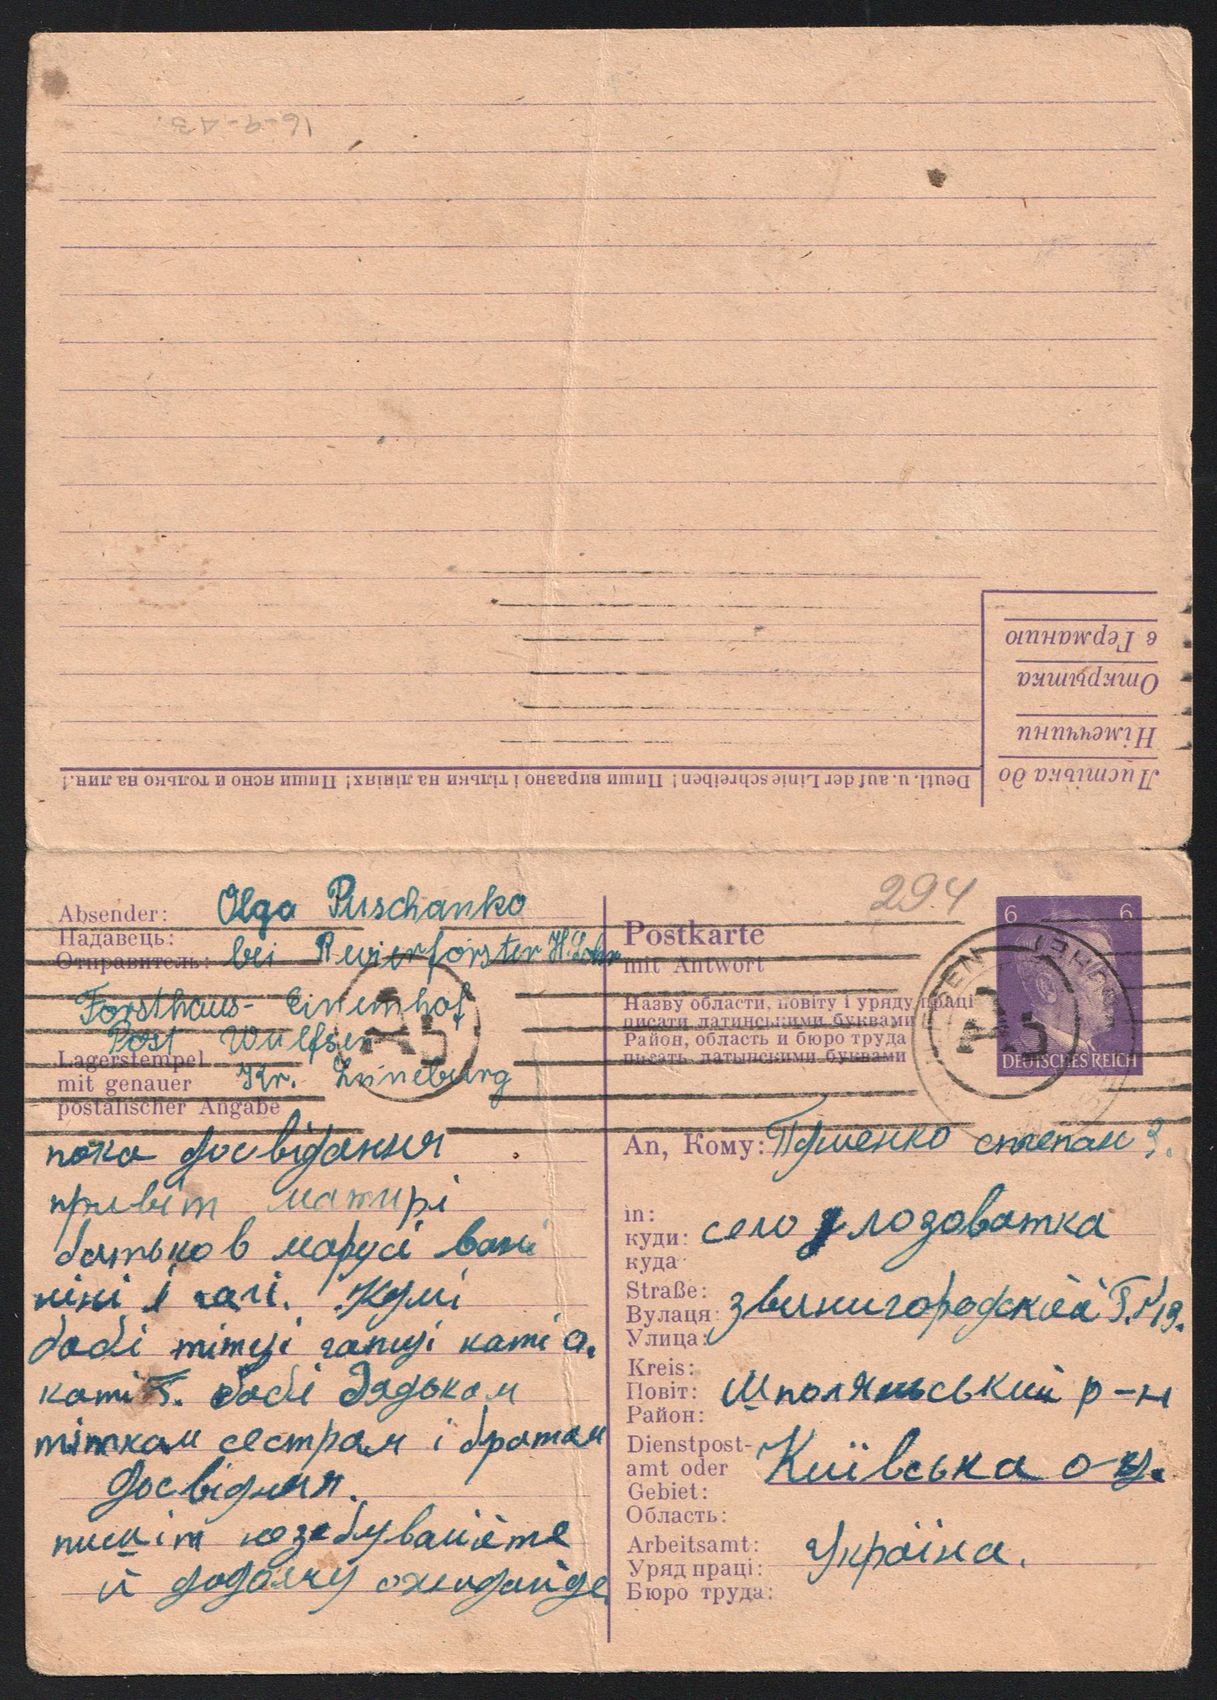 16-9-43.
в Германию
Открытка
Німеччини
Листівка до
Deutl. u. auf der Linie schreiben! Пиши виразно і тільки на лініях! Пиши ясно и только на лин.!
294
Absender: Olga Puschanko
Надавець:
Отправитель: bei Revierförster H.
Forsthaus- Einemhof
Post Wulfsen
Lagerstempel
mit genauer Kr. Lüneburg
postalischer Angabe
пока досвідання
привіт матирі
батькові марусі вані
ніні і галі.
бабі тітці гапці каті а.
каті Г. бабі дядькам
тіткам сестрам і братам
досвідання.
пишіт незабувайете
й
Postkarte
mit Antwort
Назву области, повіту і уряду праці
писати латинськими буквами
Район, область и бюро труда
писать латынскими буквами
6 6
DEUTSCHES REICH
A5
A5
An, Кому: степан
in:
куди: село лозоватка
куда
Straße:
Вулаця: звинигородской
Улица:
Kreis:
Повіт: Шполянський р-н
Район:
Dienstpost-
amt oder Київська
Gebiet:
Область:
Arbeitsamt:
Уряд праці: Україна.
Бюро труда: